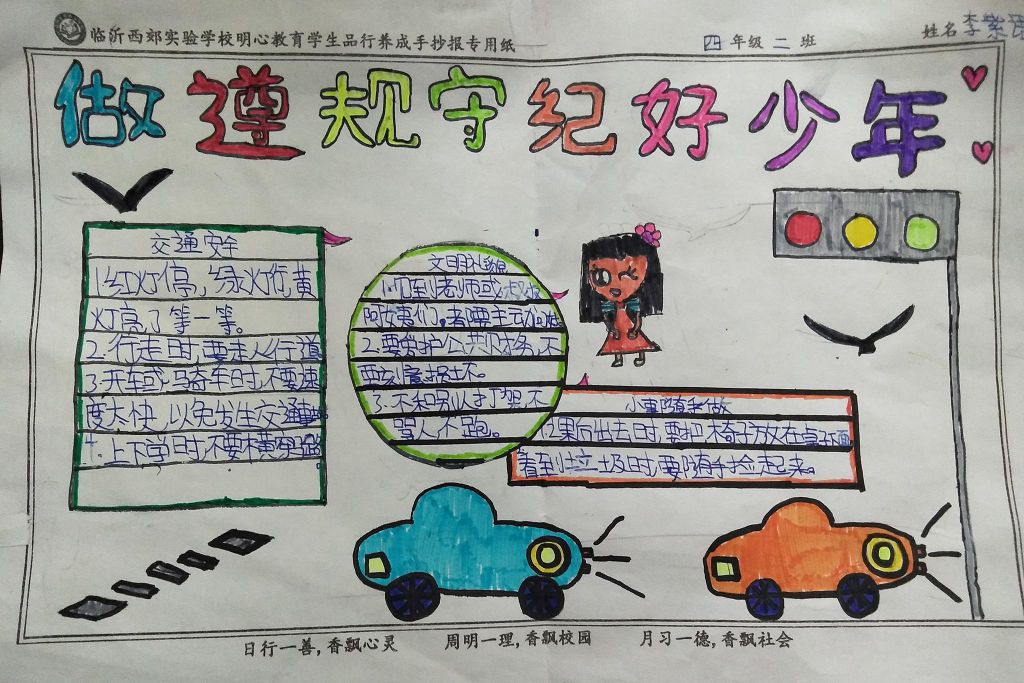 临沂西郊实验学校明心教育学生品行养成手抄报专用纸
四年级二班
姓名李紫
做遵规守纪好少年
交通安全
1.红灯停,绿灯行,黄
灯亮了等一等。
2.行走时,要走人行道
3.开车或骑车时,不要速
度太快,以免发生交通事
4.上下学时,不要横穿
文明礼貌
1.见到老师或叔叔
阿姨们。都要主动
2.要爱护公共财务,不
要刻意损坏。
3.不和别人打架,不
骂人,不跑。
小事随手做
出去时,要把椅子放在桌子
看到垃圾时,要随手捡起来。
日行一善,香飘心灵
周明一理,香飘校园
月习一德,香飘社会